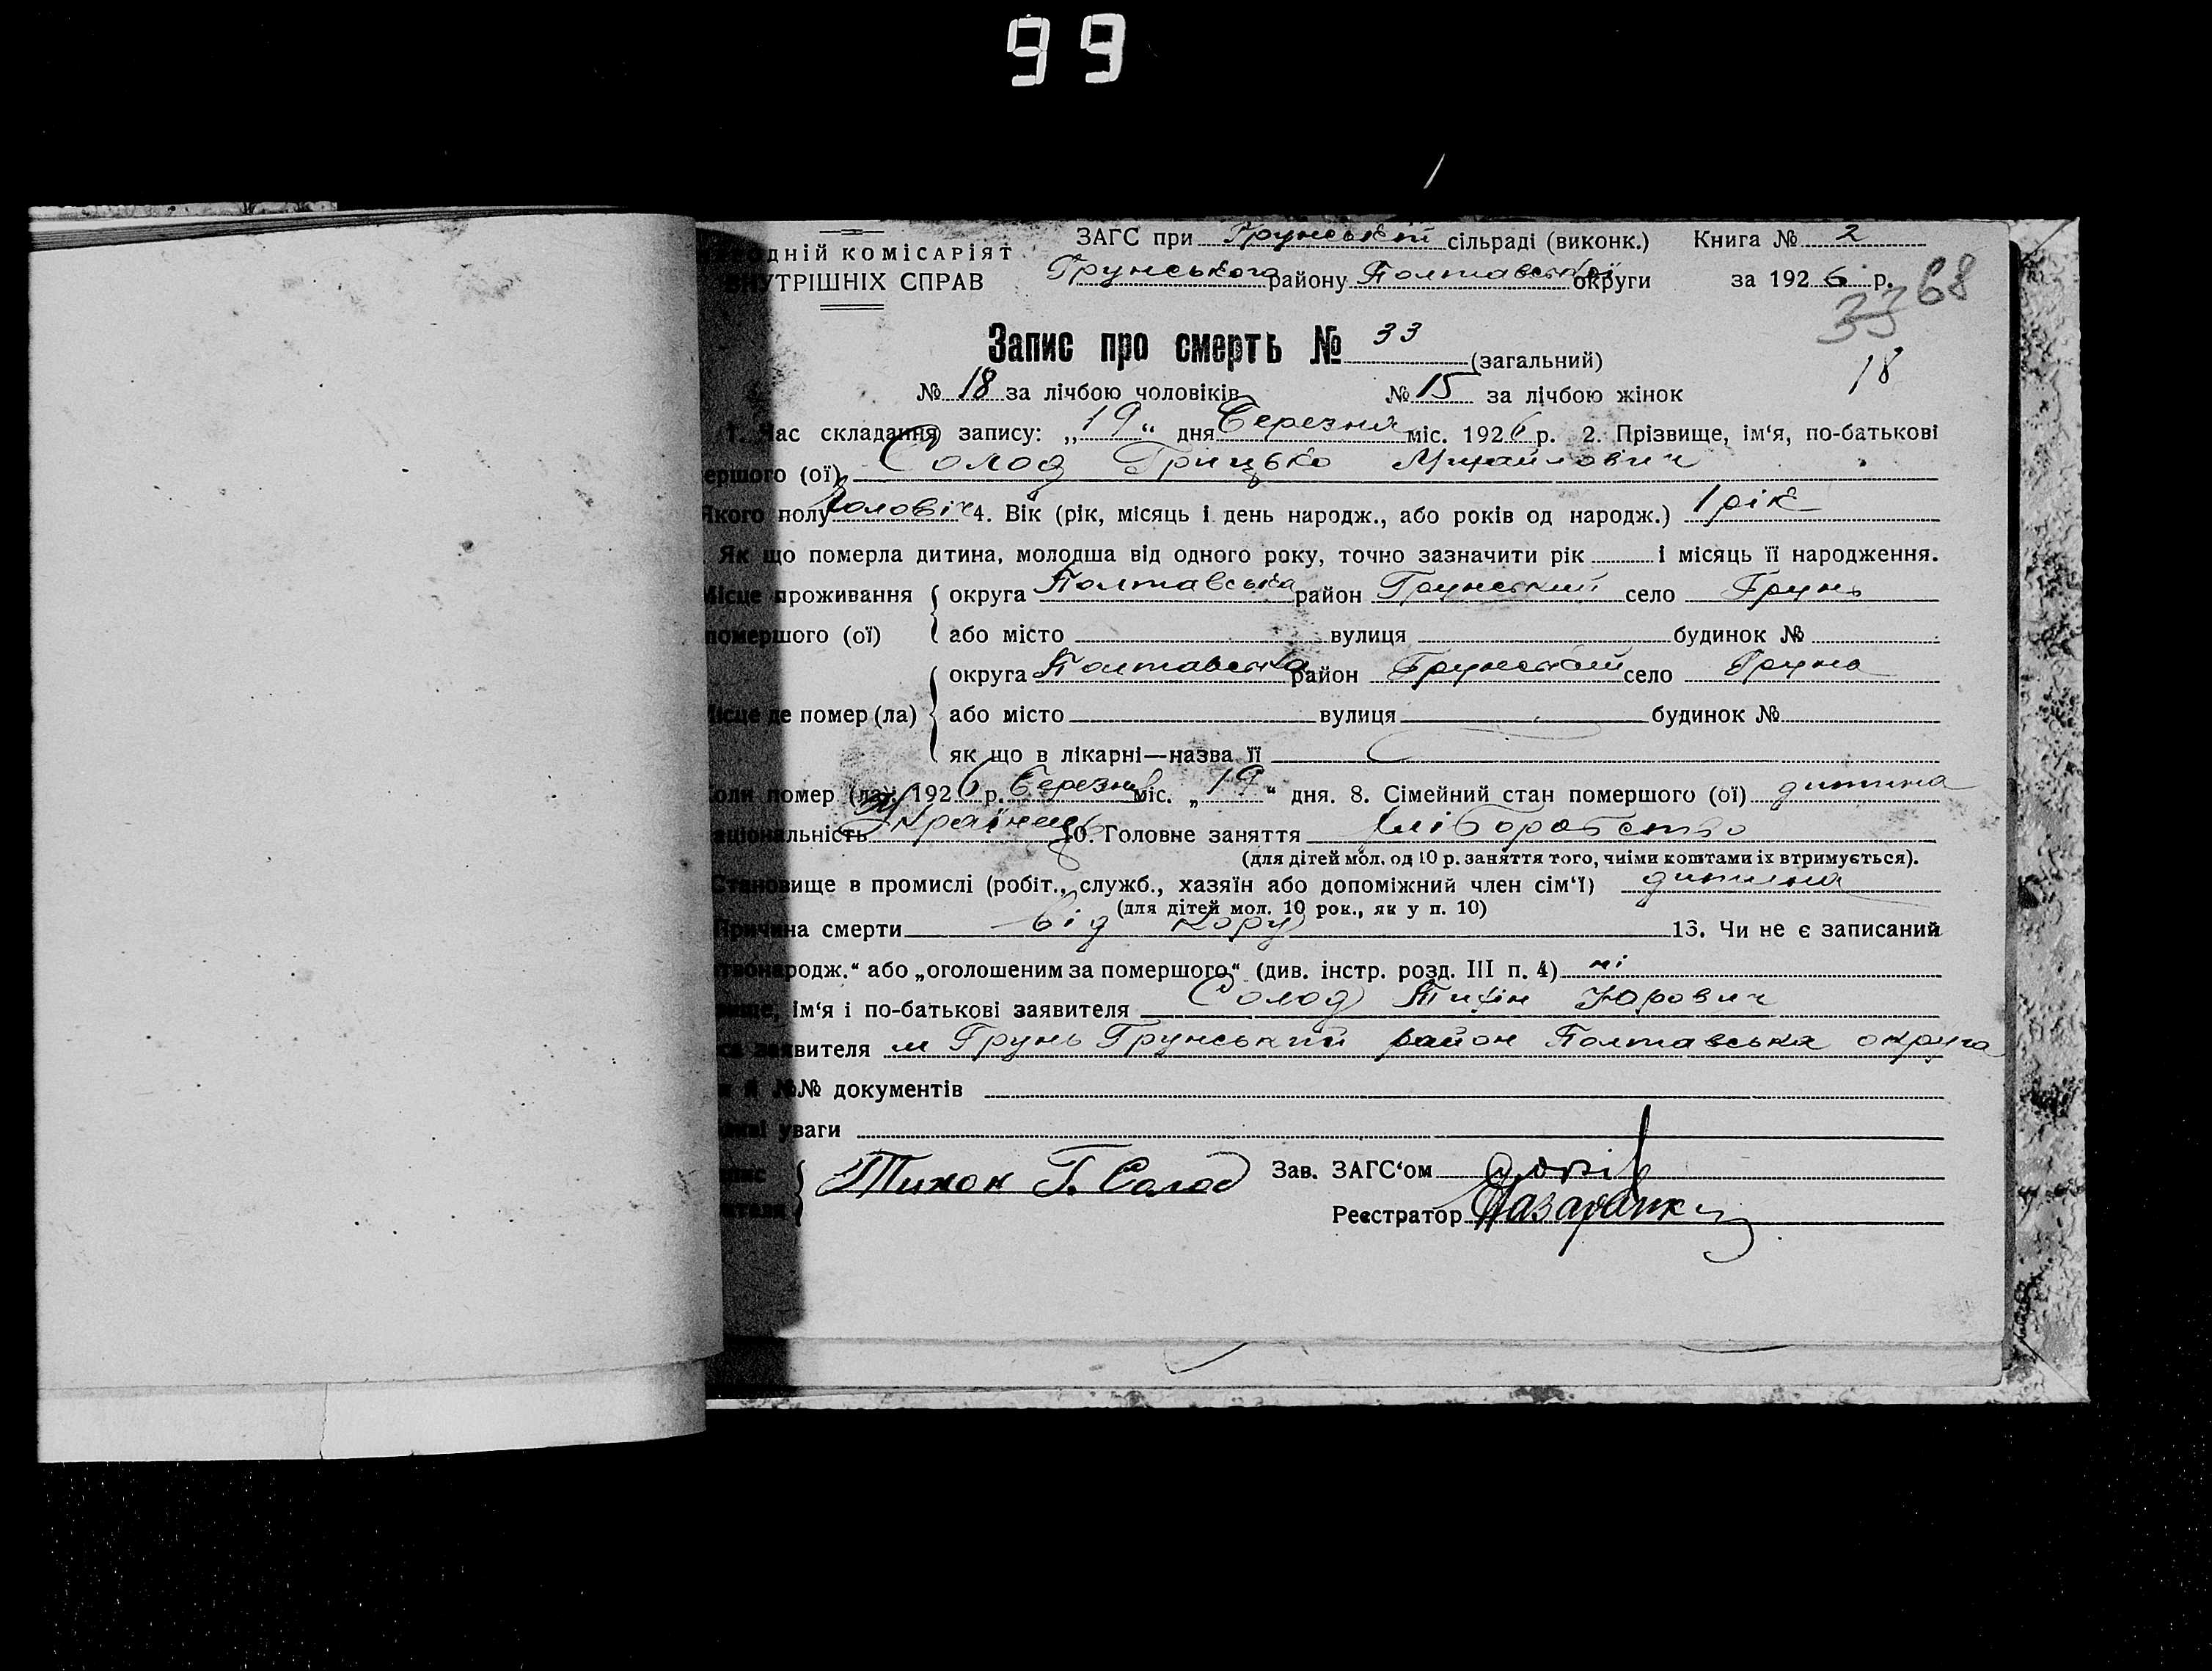 99
ОДНІЙ КОМІСАРІЯТ
ВНУТРІШНІХ СПРАВ
ЗАГС при Грунській сільраді (виконк.) Книга № 2
Грунського району Полтавської округи за 1926 р.
68
33
Запис про смерть № 33 (загальний)
18
№ 18 за лічбою чоловіків № 15 за лічбою жінок
1. Час складання запису: „19“ дня Березня міс. 1926 р. 2. Прізвище, ім‘я, по-батькові
ершого (ої) Солод Грицько Михайлович
Якого полу чоловіч 4. Вік (рік, місяць і день народж., або років од народж.) 1 рік
Як що померла дитина, молодша від одного року, точно зазначити рік і місяць її народження.
Місце проживання округа Полтавська район Грунський село Грунь
помершого (ої) або місто вулиця будинок №
округа Полтавська район Грунський село Грунь
Місце де помер (ла) або місто вулиця будинок №
як що в лікарні—назва її
Коли помер (ла): 1926 р. Березня міс. „19“ дня. 8. Сімейний стан помершого (ої) дитина
аціональність Українець 10. Головне заняття хліборобство
(для дітей мол. од 10 р. заняття того, чиїми коштами їх втримується).
Становище в промислі (робіт., служб., хазяїн або допоміжний член сім‘ї) дитина
(для дітей мол. 10 рок., як у п. 10)
Причина смерти від кору 13. Чи не є записаний
твонародж.“ або „оголошеним за помершого“ (див. інстр. розд. III п. 4) ні
вище, ім‘я і по-батькові заявителя Солод Тихін Юрович
са заявителя м Грунь Грунський район Полтавська округа
и й №№ документів
ливі уваги
пис Тихон Г. Солод Зав. ЗАГС‘ом
вителя Реєстратор